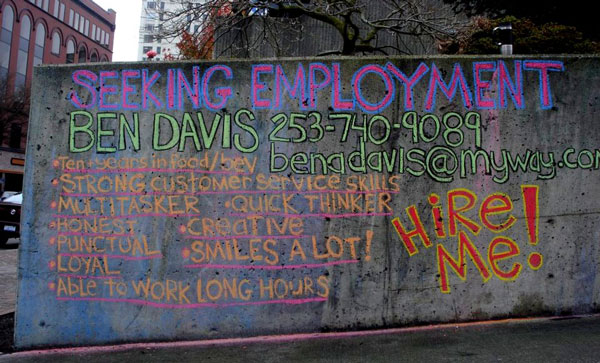 SEEKING EMPLOYMENT
BEN DAVIS 253-740-9089
bengdavis@myway.com
•Ten+years in food/bev
•STRONG customer service skills
•MULTITASKER •QUICK THINKER
•HONEST •CREATIVE
•PUNCTUAL •SMILES A LOT!
•LOYAL
•Able to WORK LONG HOURS
HiRe Me!